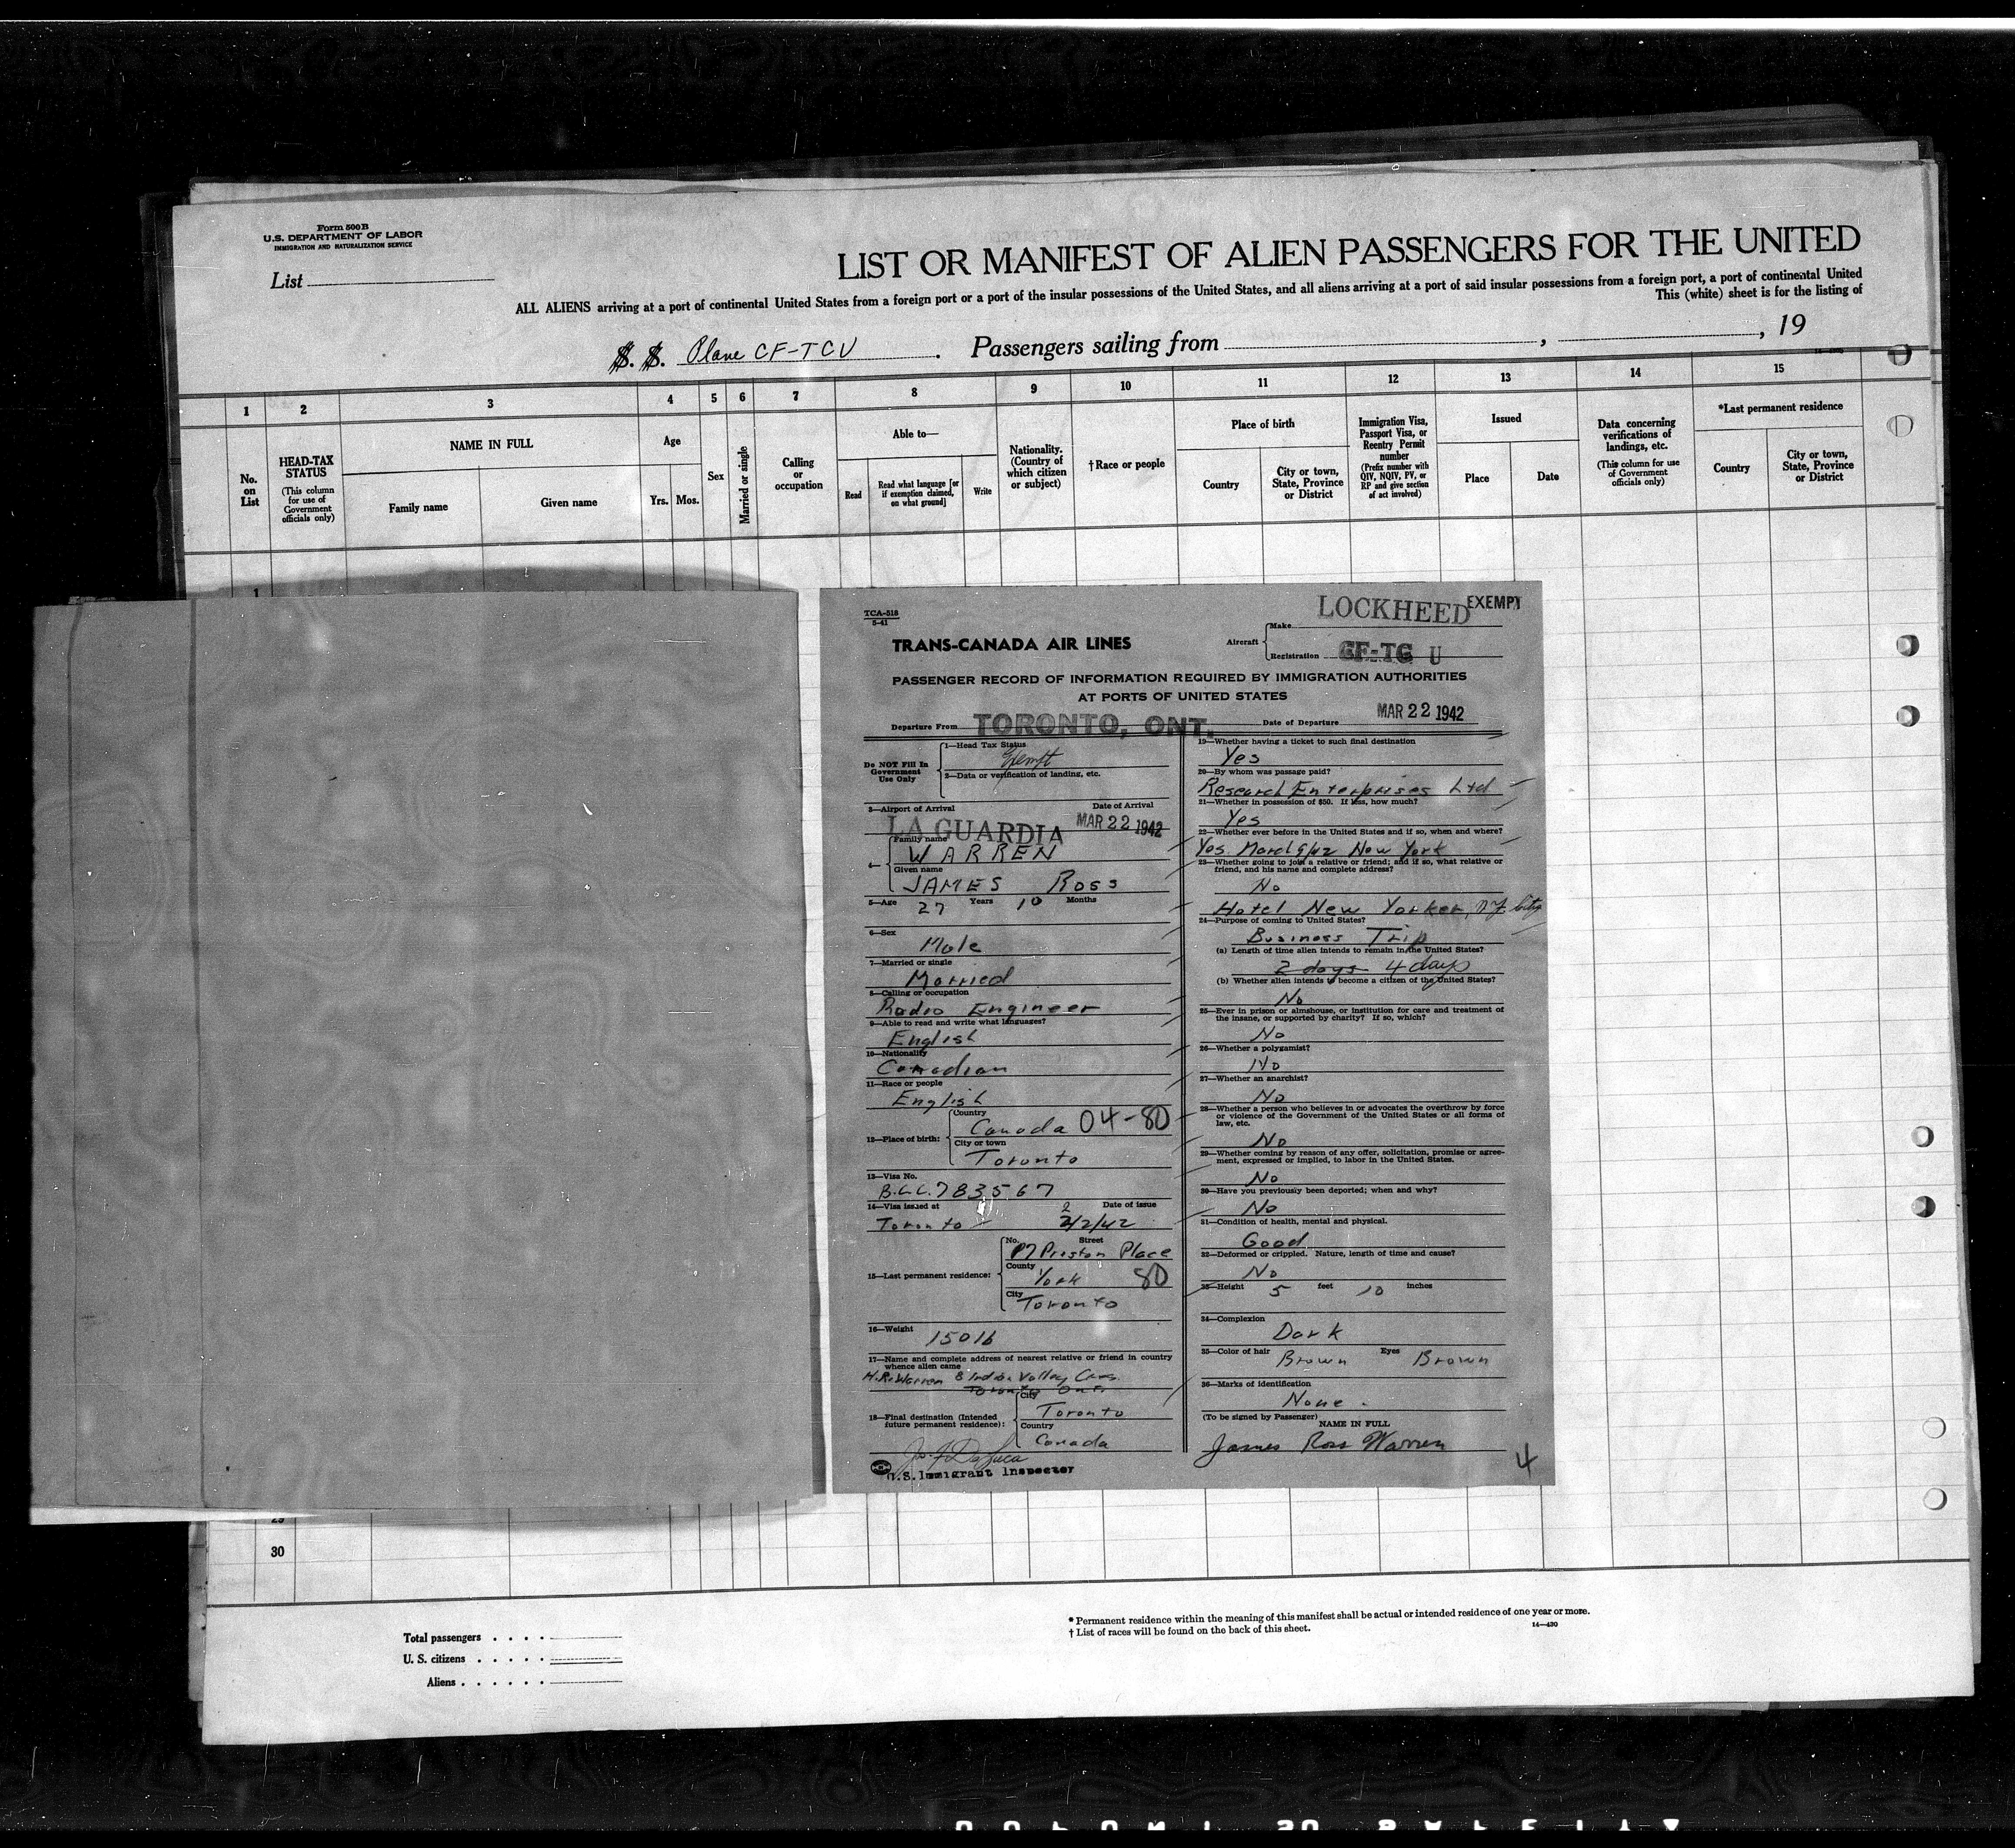 Form 500 B
U.S. DEPARTMENT OF LABOR
IMMIGRATION AND NATURALIZATION SERVICE
List
LIST OR MANIFEST OF ALIEN PASSENGERS FOR THE UNITED
ALL ALIENS arriving at a port of continental United States from a foreign port or a port of the insular possessions of the United States, and all aliens arriving at a port of said insular possessions from a foreign port, a port of continental United
This (white) sheet is for the listing of
S. S. Plane CF-TCU. Passengers sailing from , , 19
1 2 3 4 5 6 7 8 9 10 11 12 13 14 15
No. on List
HEAD-TAX STATUS
(This column for use of Government officials only)
NAME IN FULL
Family name
Given name
Age
Yrs. Mos.
Sex
Married or single
Calling or occupation
Able to—
Read
Read what language [or if exemption claimed, on what ground]
Write
Nationality. (Country of which citizen or subject)
†Race or people
Place of birth
Country
City or town, State, Province or District
Immigration Visa, Passport Visa, or Reentry Permit number
(Prefix number with QIV, NQIV, PV, or RP and give section of act involved)
Issued
Place
Date
Data concerning verifications of landings, etc.
(This column for use of Government officials only)
*Last permanent residence
Country
City or town, State, Province or District
1
TCA-518
5-41
TRANS-CANADA AIR LINES
Aircraft
Make LOCKHEED EXEMPT
Registration CF-TC U
PASSENGER RECORD OF INFORMATION REQUIRED BY IMMIGRATION AUTHORITIES
AT PORTS OF UNITED STATES
Departure From TORONTO, ONT. Date of Departure MAR 22 1942
Do NOT Fill In Government Use Only
1—Head Tax Status
Exempt
2—Data or verification of landing, etc.
3—Airport of Arrival Date of Arrival
LA GUARDIA MAR 22 1942
4—
Family name
WARREN
Given name
JAMES ROSS
5—Age 27 Years 10 Months
6—Sex
Male
7—Married or single
Married
8—Calling or occupation
Radio Engineer
9—Able to read and write what languages?
English
10—Nationality
Canadian
11—Race or people
English
12—Place of birth:
Country
Canada 04-80
City or town
Toronto
13—Visa No.
B.C.C. 783567
14—Visa issued at Date of issue
Toronto 2/2/42
15—Last permanent residence:
No. Street
Preston Place
County
York 80
City
Toronto
16—Weight
150 lb
17—Name and complete address of nearest relative or friend in country
whence alien came
H.R. Warren 8 Indian Valley Cres.
Toronto Ont.
18—Final destination (Intended
future permanent residence):
City
Toronto
Country
Canada
U.S. Immigrant Inspector
19—Whether having a ticket to such final destination
Yes
20—By whom was passage paid?
Research Enterprises Ltd
21—Whether in possession of $50. If less, how much?
Yes
22—Whether ever before in the United States and if so, when and where?
Yes. March 9/42 New York
23—Whether going to join a relative or friend; and if so, what relative or
friend, and his name and complete address?
No
Hotel New Yorker, N.Y. City
24—Purpose of coming to United States?
Business Trip
(a) Length of time alien intends to remain in the United States?
2 days 4 days
(b) Whether alien intends to become a citizen of the United States?
No
25—Ever in prison or almshouse, or institution for care and treatment of
the insane, or supported by charity? If so, which?
No
26—Whether a polygamist?
No
27—Whether an anarchist?
No
28—Whether a person who believes in or advocates the overthrow by force
or violence of the Government of the United States or all forms of
law, etc.
No
29—Whether coming by reason of any offer, solicitation, promise or agree-
ment, expressed or implied, to labor in the United States.
No
30—Have you previously been deported; when and why?
No
31—Condition of health, mental and physical.
Good
32—Deformed or crippled. Nature, length of time and cause?
No
33—Height 5 feet 10 inches
34—Complexion
Dark
35—Color of hair Brown Eyes Brown
36—Marks of identification
None.
(To be signed by Passenger)
NAME IN FULL
James Ross Warren
4
29
30
Total passengers
U. S. citizens
Aliens
* Permanent residence within the meaning of this manifest shall be actual or intended residence of one year or more.
† List of races will be found on the back of this sheet.
14—430